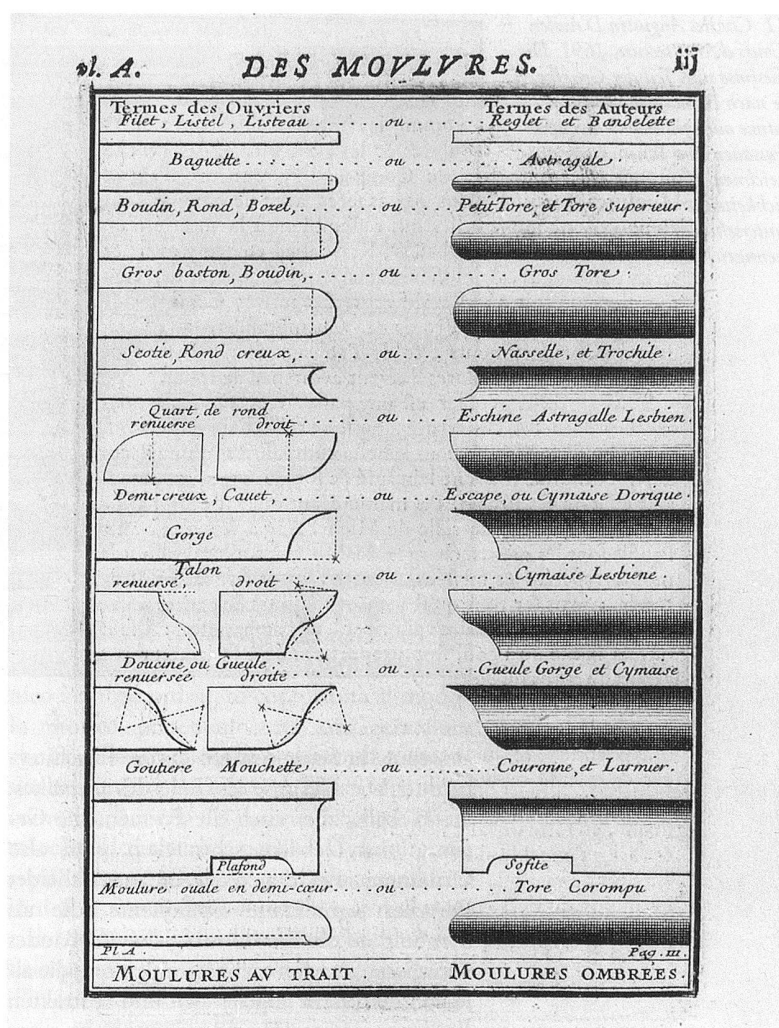 Pl. A. DES MOVLVRES. iij
Termes des Ouvriers Termes des Auteurs
Filet, Listel, Listeau ..... ou ..... Reglet et Bandelette
Baguette ..... ou ..... Astragale.
Boudin, Rond, Bozel, ..... ou ..... Petit Tore, et Tore superieur.
Gros baston, Boudin, ..... ou ..... Gros Tore.
Scotie, Rond creux, ..... ou ..... Nasselle, et Trochile.
Quart de rond ..... ou ..... Eschine Astragalle Lesbien.
renuerse droit
Demi-creux, Cauet, ..... ou ..... Escape, ou Cymaise Dorique.
Gorge
Talon ..... ou ..... Cymaise Lesbiene
renuerse droit
Doucine ou Gueule ..... ou ..... Gueule Gorge et Cymaise
renuersée droite
Goutiere Mouchette ..... ou ..... Couronne, et Larmier.
Plafond Sofite
Moulure ouale en demi-cœur. ou ..... Tore Corompu
Pl. A Pag. III.
MOULURES AV TRAIT MOULURES OMBRÉES.